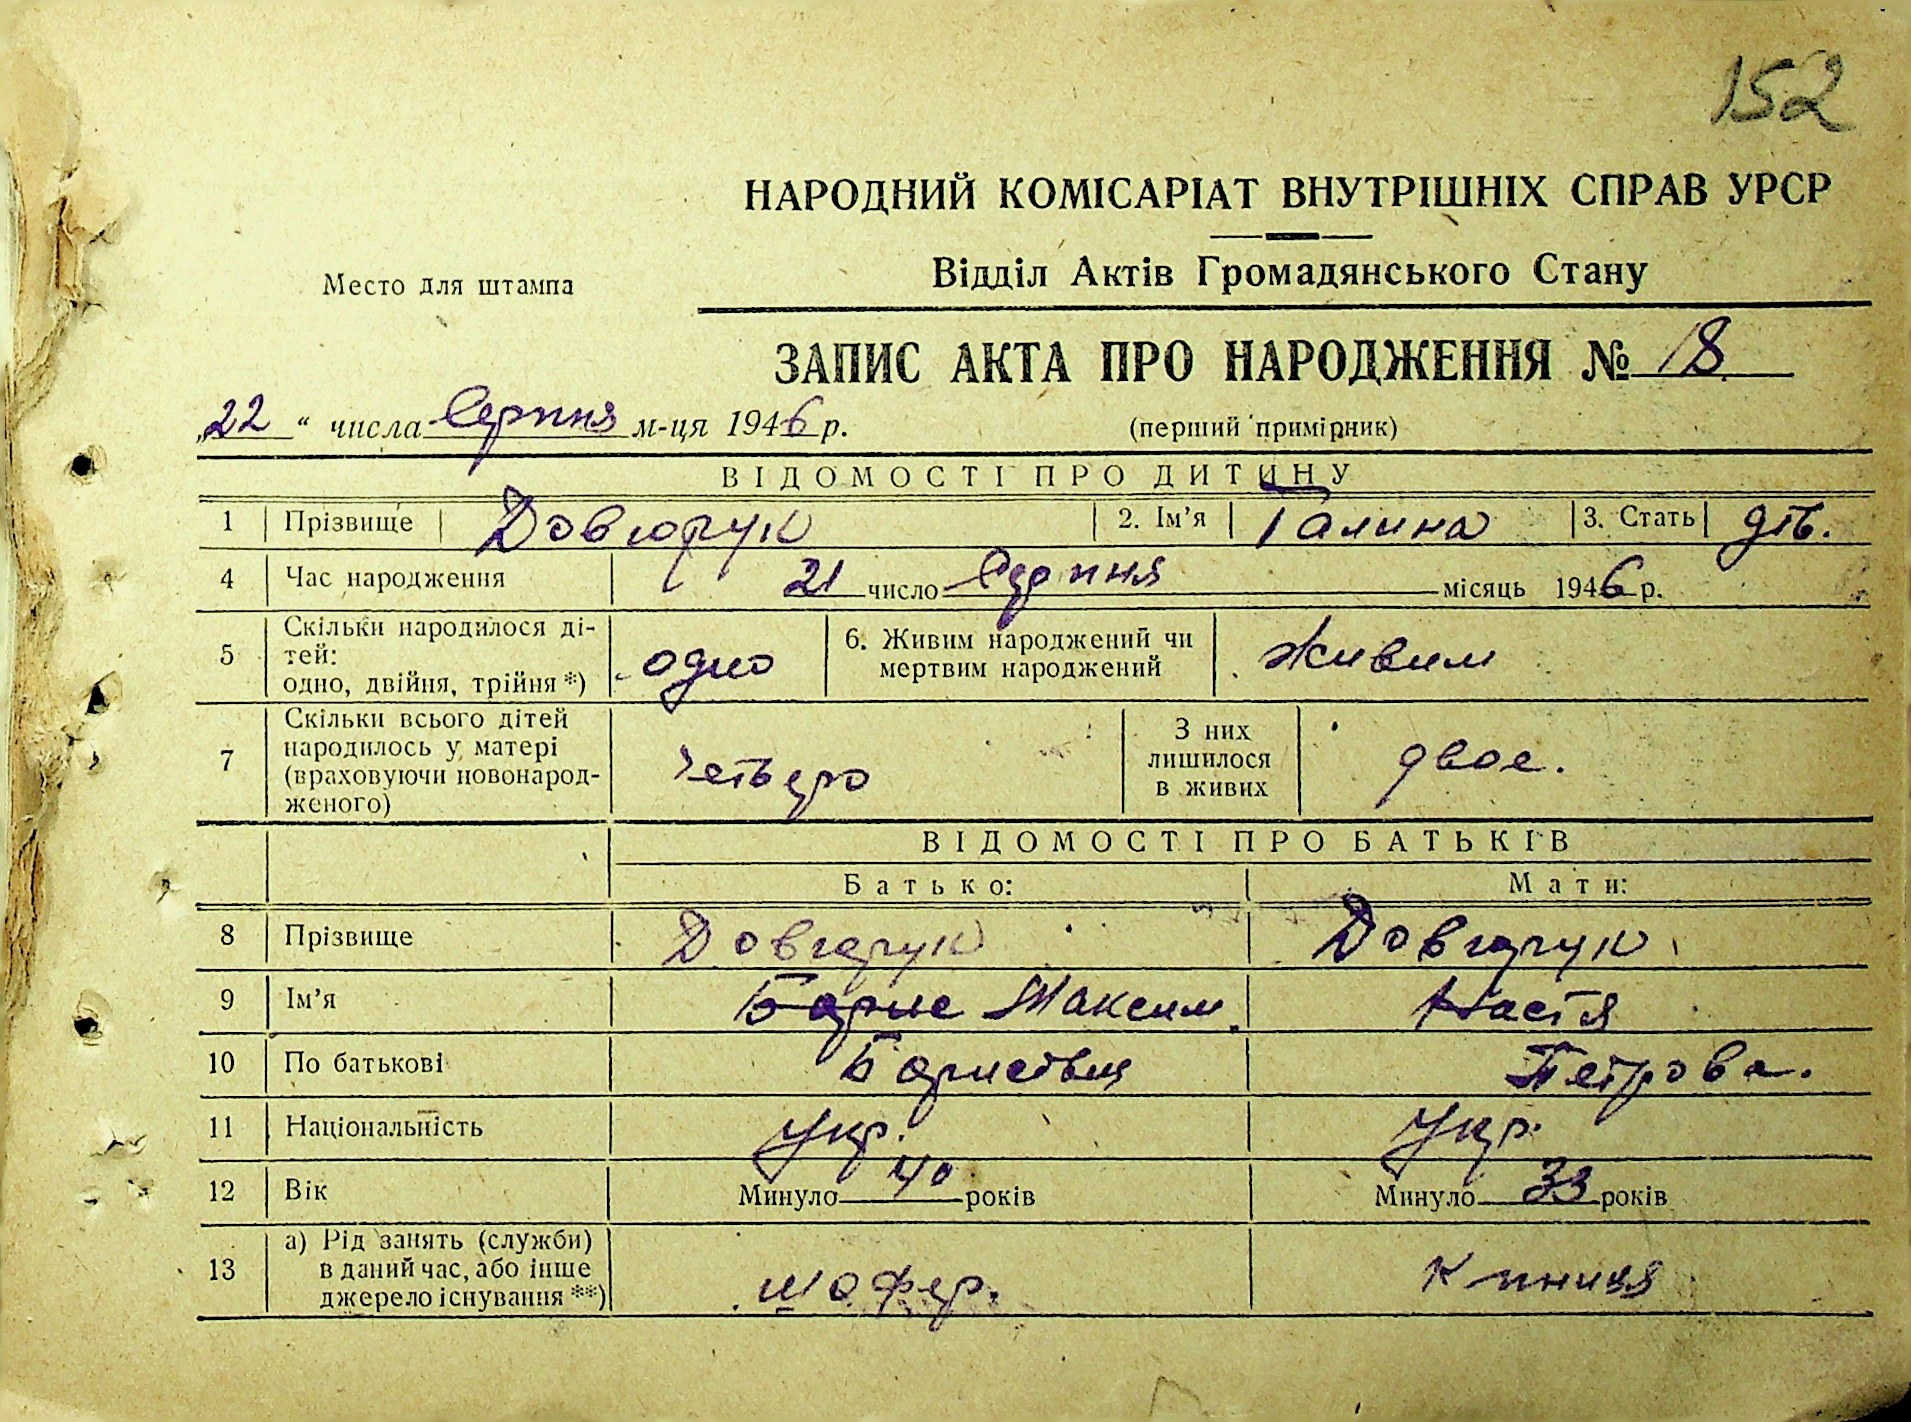 152
НАРОДНИЙ КОМІСАРІАТ ВНУТРІШНІХ СПРАВ УРСР
Відділ Актів Громадянського Стану
Место для штампа
ЗАПИС АКТА ПРО НАРОДЖЕННЯ № 18
„22“ числа Серпня м-ця 1946 р. (перший примірник)
ВІДОМОСТІ ПРО ДИТИНУ
1 Прізвище 2. Ім'я Галина 3. Стать дів.
4 Час народження 21 число Серпня місяць 1946 р.
5 Скільки народилося ді-
тей:
одно, двійня, трійня *) одно 6. Живим народжений чи
мертвим народжений живим
7 Скільки всього дітей
народилось у матері
(враховуючи новонарод-
женого) четверо З них
лишилося
в живих двое.
ВІДОМОСТІ ПРО БАТЬКІВ
Батько: Мати:
8 Прізвище
9 Ім'я Борис Максим Настя
10 По батькові Петрова.
11 Національність Укр. Укр.
12 Вік Минуло 40 років Минуло 33 років
13 а) Рід занять (служби)
в даний час, або інше
джерело існування **) шофер.